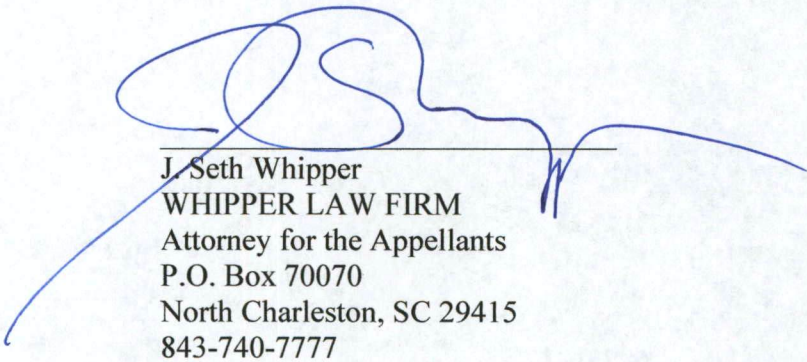 J. Seth Whipper
WHIPPER LAW FIRM
Attorney for the Appellants
P.O. Box 70070
North Charleston, SC 29415
843-740-7777